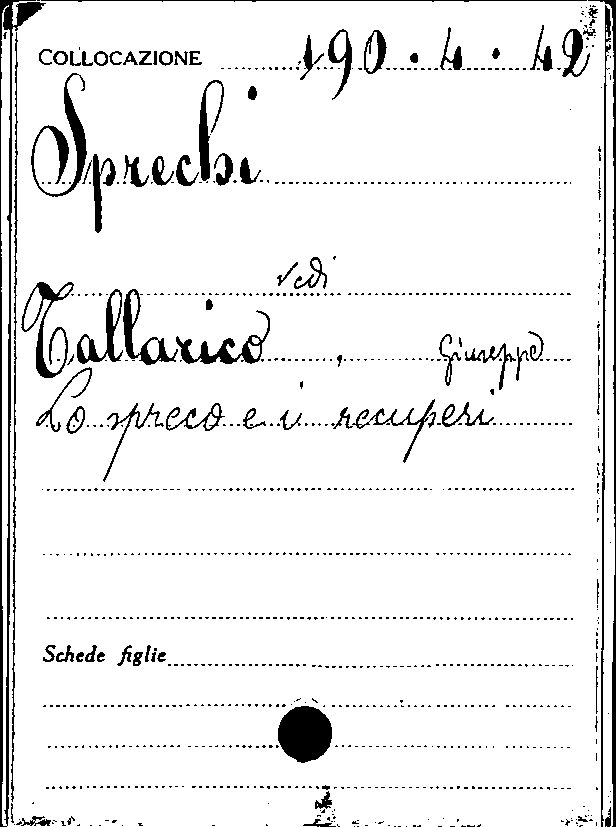 COLLOCAZIONE 190.4.42
Sprechi
vedi
Tallarico, Giuseppe
Lo spreco e i recuperi
Schede figlie